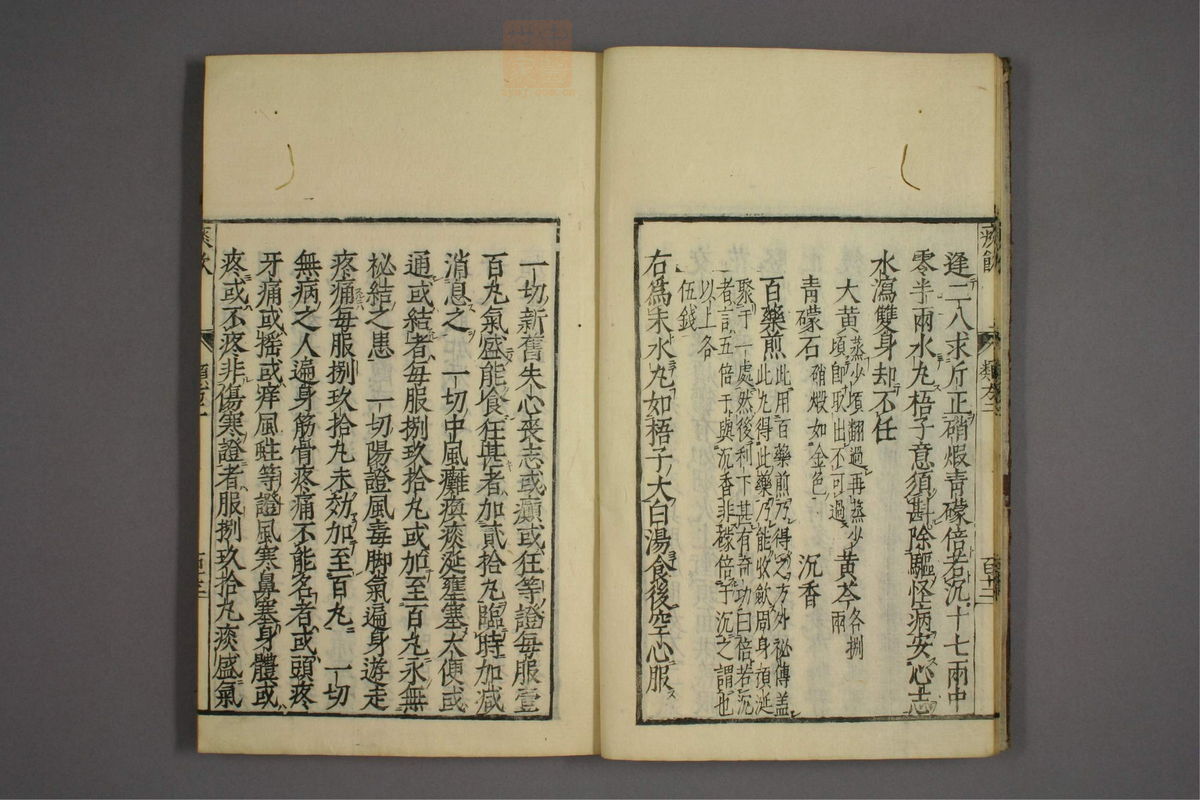 逢二八求斤正硝煆青礞倍若沉十七兩中
零半兩水丸梧子意須斟除驅怪病安心志
水瀉雙身却不任
大黃蒸少頃翻過再蒸少頃卽取出不可過 黃芩各捌兩
青礞石硝煅如金色 沉香
百藥煎此用百藥煎乃得之方外祕傳盖此丸得此藥乃能收斂周身頑涎
聚于一處然後利下甚有奇功曰倍若沉者言五倍于與沉香非礞倍于沉之謂也
以上各伍錢
右爲末水丸如梧子大白湯食後空心服
一切新舊失心喪志或癲或狂等證每服壹
百丸氣盛能食狂甚者加貳拾丸臨時加減
消息之 一切中風癱瘓痰涎壅塞大便或
通或結者每服捌玖拾丸或加至百丸永無
祕結之患 一切陽證風毒脚氣遍身遊走
疼痛每服捌玖拾丸未効加至百丸 一切
無病之人遍身筋骨疼痛不能名者或頭疼
牙痛或搖或痒風蛀等證風寒鼻塞身體或
疼或不疼非傷寒證者服捌玖拾丸痰盛氣